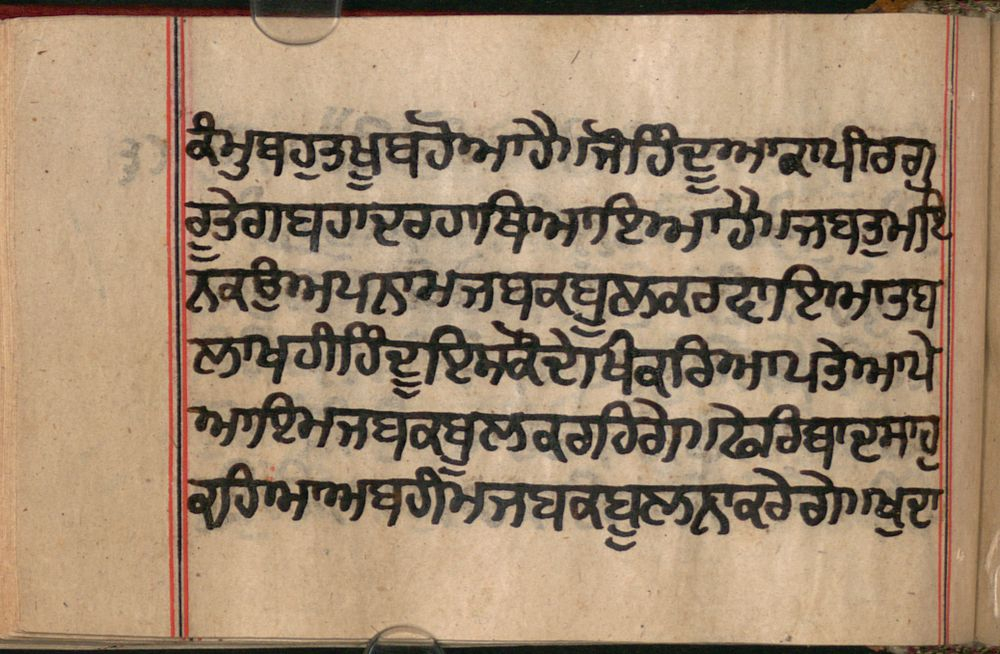 ਕੰਮੁਬਹੁਤਖੂਬਹੋਆਹੈ॥ਜੋਹਿੰਦੂਆਕਾਪੀਰਗੁ
ਰੂਤੇਗਬਹਾਦਰਹਾਥਿਆਇਆਹੈ॥ਜਬਤੁਮਇ
ਨਕਉਅਪਨਾਮਜਬਕਬੂਲਕਰਵਾਇਆਤਬ
ਲਾਖਹੀਹਿੰਦੂਇਸਕੋਦੇਖਿਕਰਿਆਪਤੇਆਪੇ
ਆਇਮਜਬਕਬੂਲਕਰਹਿਗੇ॥ਫੇਰਿਬਾਦਸਾਹੁ
ਕਹਿਆਅਬਹੀਮਜਬਕਬੂਲਨਾਕਰੇਗੇ॥ਖੁਦਾ